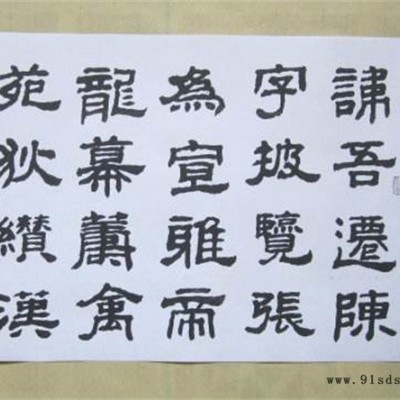 吾遷陳
字披覽張
為宣雅帝
龍幕禽
苑狄纘漢
www.91sds